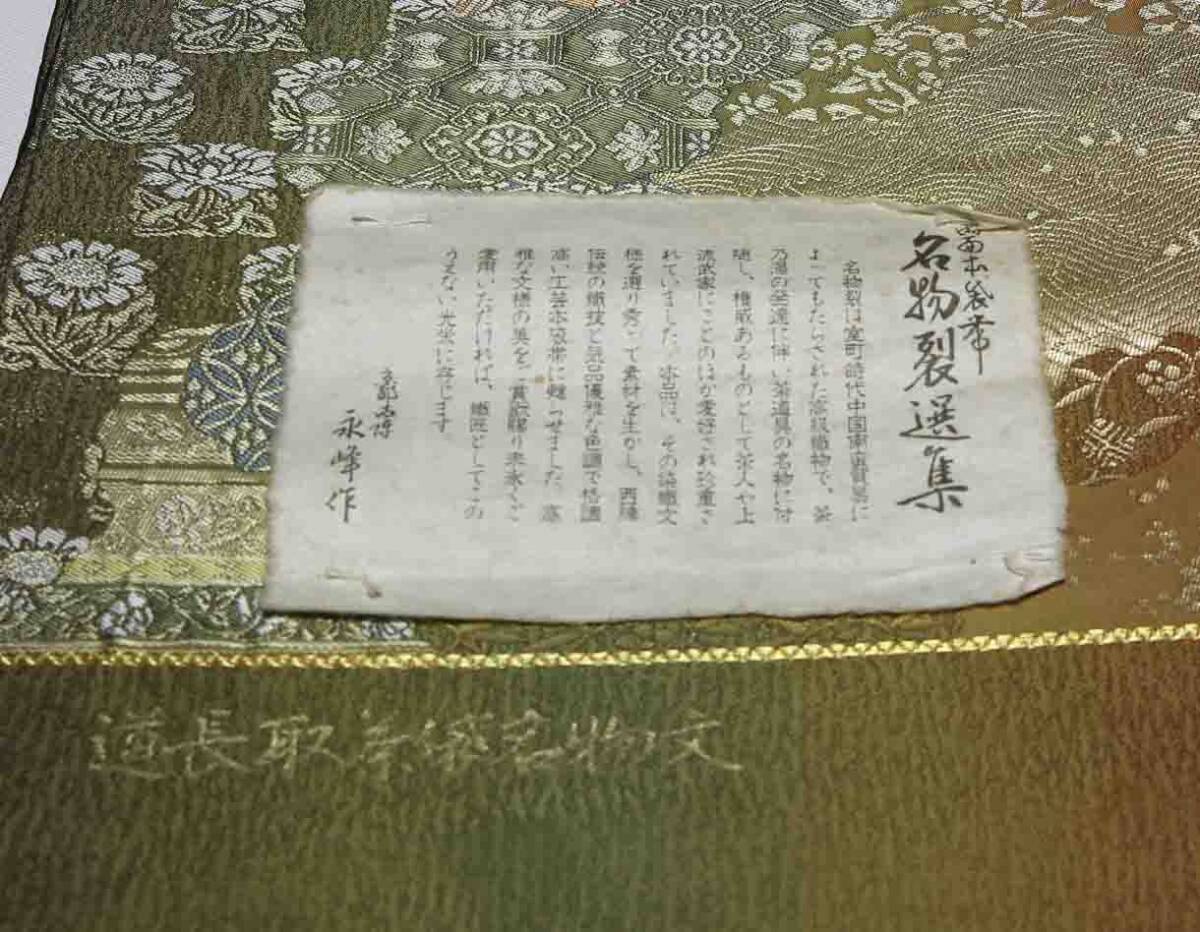 本袋帯
名物裂選集
名物裂は室町時代中国南蛮貿易に
よってもたらされた高級織物で、茶
乃湯の発達に伴い茶道具の名物に付
随し、権威あるものとして茶人や上
流武家にことのほか愛好され珍重さ
れていました。本品は、その染織文
様を選り秀って素材を生かし、西陣
伝統の織技と気品優雅な色調で格調
高い工芸本袋帯に甦らせました。高
雅な文様の美をご賞翫賜り末永くご
愛用いただければ、織匠としてこの
うえない光栄に存じます。
永峰作
道長取 名物文